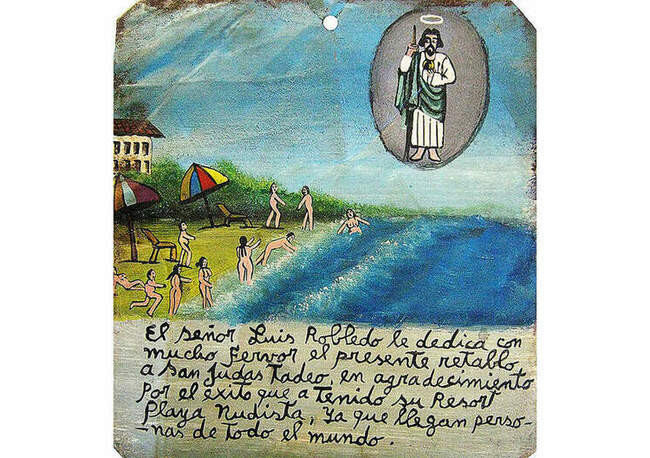 El señor Luis Robledo le dedica con
mucho fervor el presente retablo
a San Judas Tadeo, en agradecimiento
Por el exito que a tenido su Resort
Playa Nudista, Ya que llegan perso-
-nas de todo el mundo.